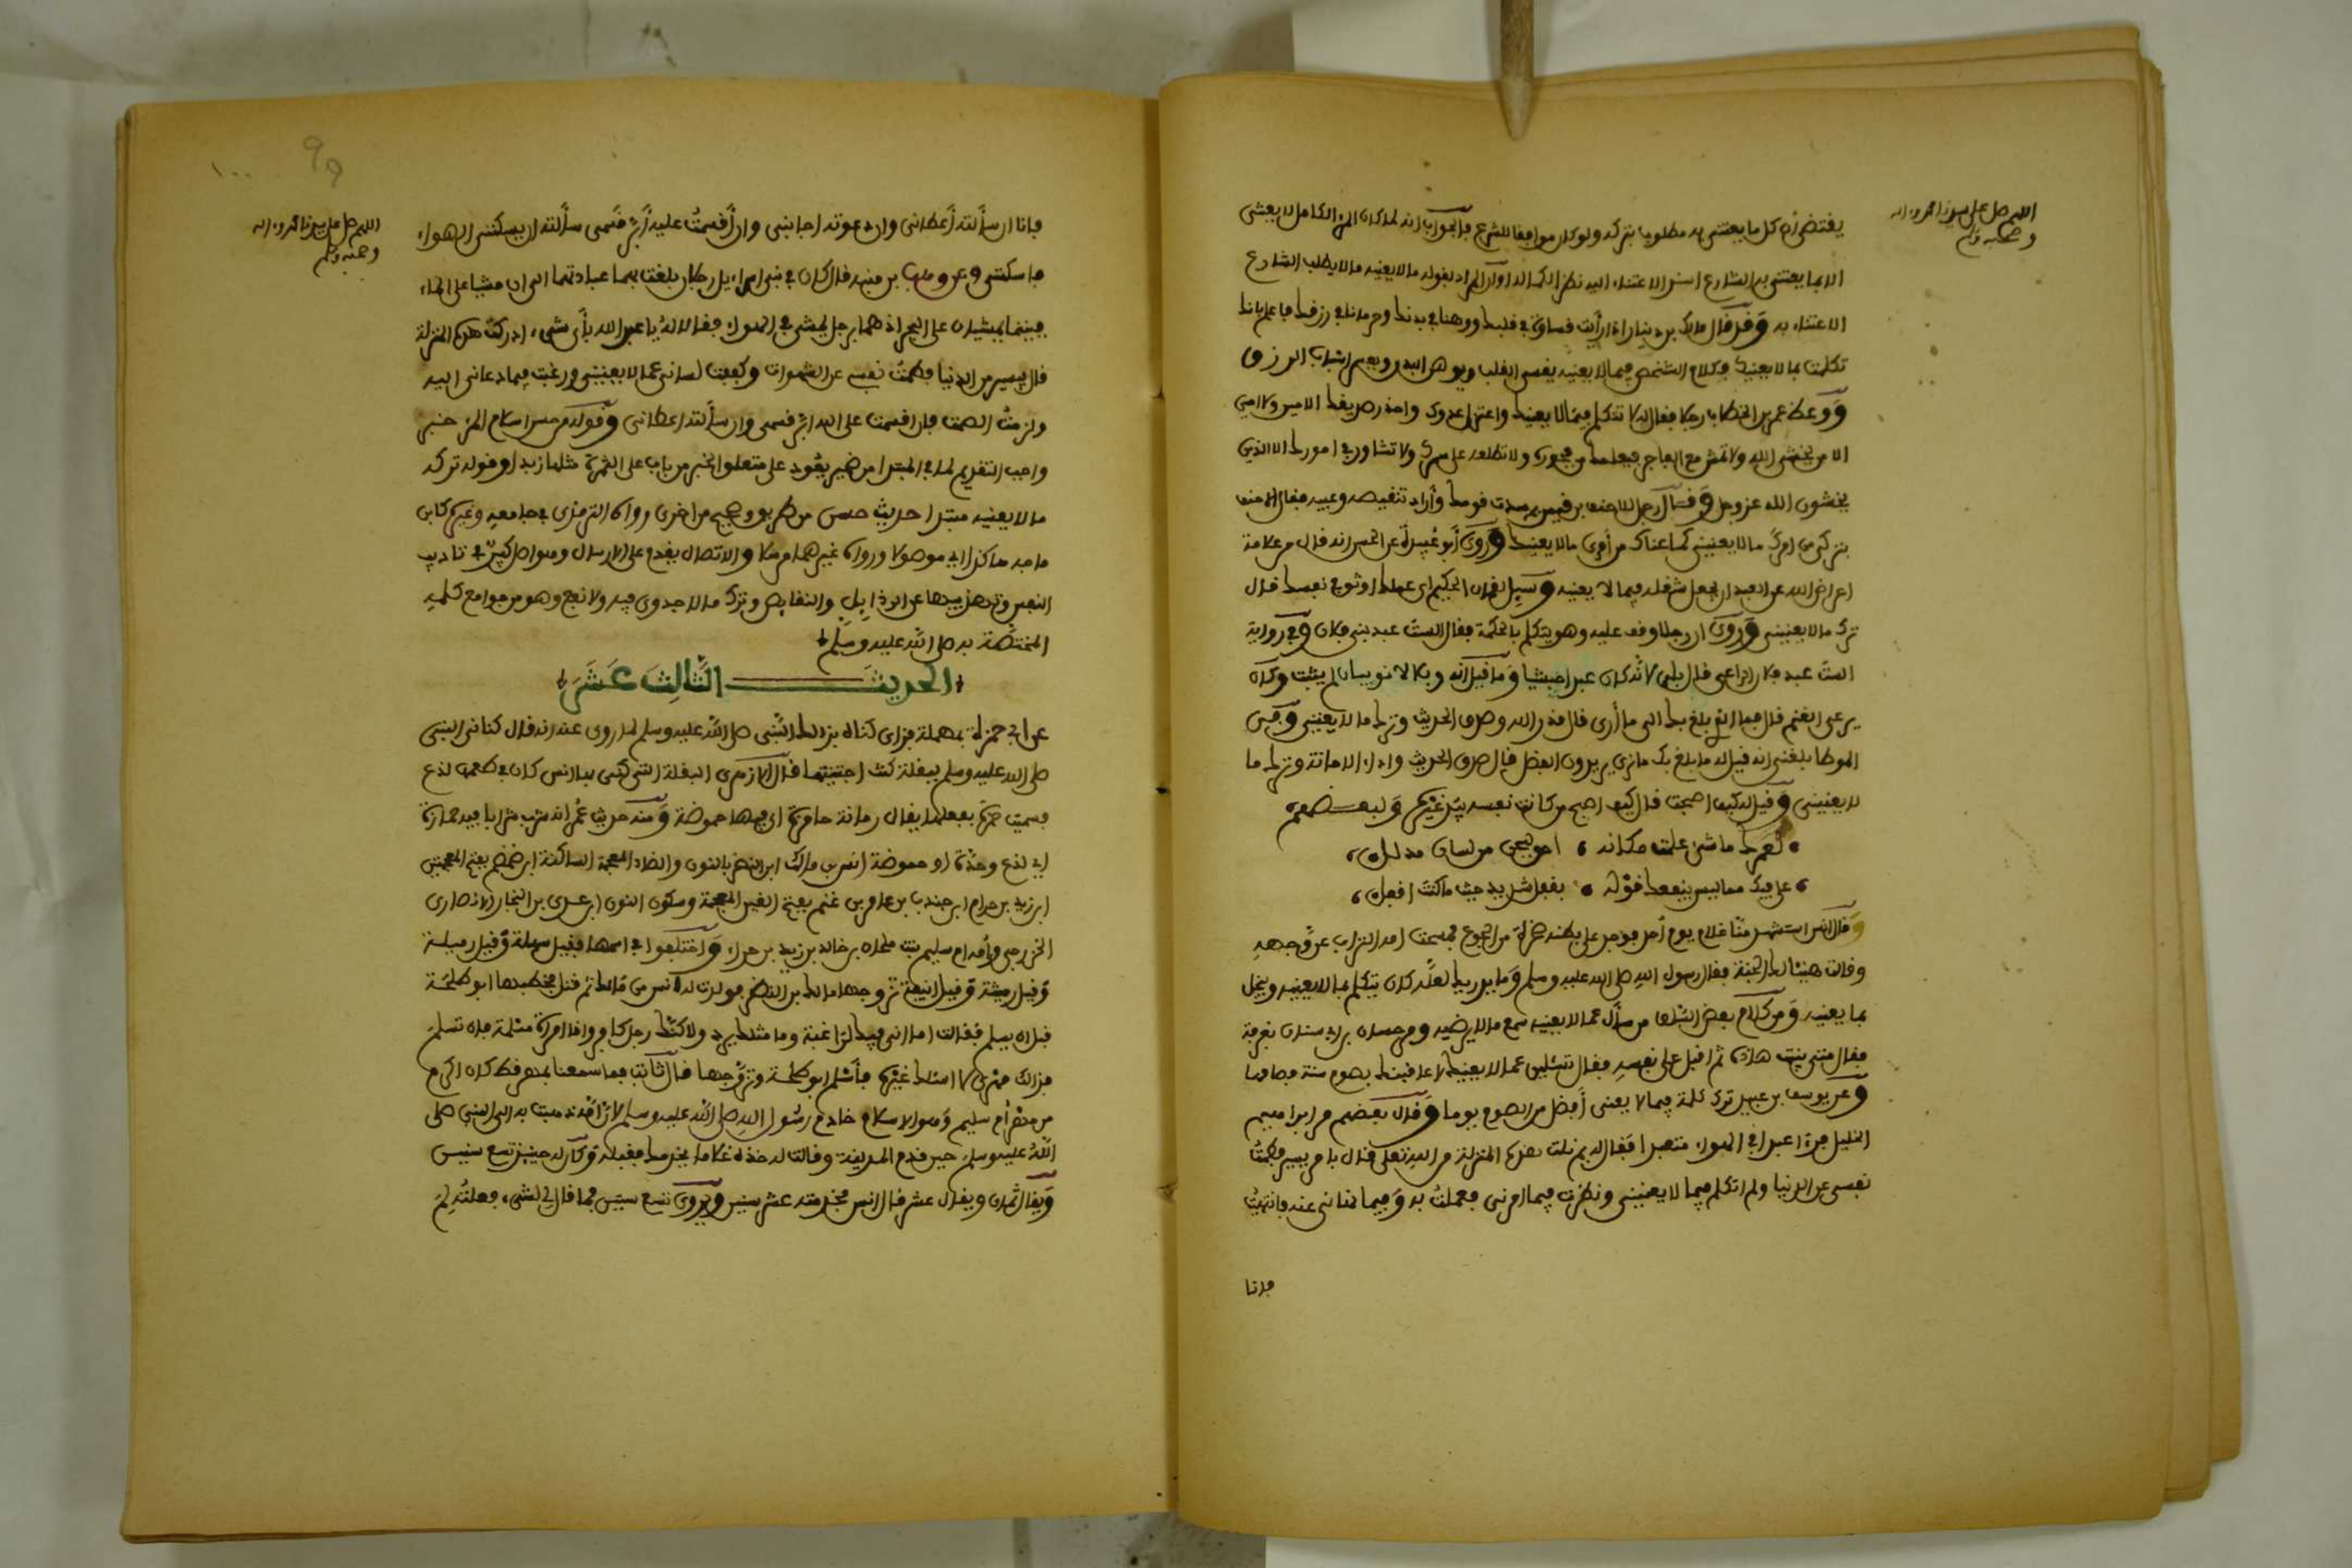 اللهم صل على سيدنا محمد وءاله
وصحبه وسلم
يقتضى ان كل ما يعتنى به مطلوب بتركه ولو كان موافقا للشرع فالجواب انه لما كان المرء الكامل لا يعتنى
الا بما يعتنى به الشارع اسند الاعتناء اليه نظرا لكماله او ان المراد بقوله ما لا يعنيه ما لا يطلب الشارع
الاعتناء به وقد قال مالك بن دينار اذا رأيت قساوة في قلبك ووهنا في بدنك وحرمانا في رزقك فاعلم بانك
تكلمت بما لا يعنيك فكلام الشخص فيما لا يعنيه يقسى القلب ويوهن البدن ويعسر اسباب الرزق
ووعظ عمر بن الخطاب رجلا فقال له لا تتكلم فيما لا يعنيك واعتزل عدوك واحذر صديقك الامين ولا امين
الا من يخشى الله ولا تمش مع الفاجر فيعلمك من فجوره ولا تطلعه على سرك ولا تشاور في امورك الا الذين
يخشون الله عز وجل وقال رجل للاحنف بن قيس بم سدت قومك وأراد تنقيصه وعيبه فقال الاحنف
بتركى من امرك ما لا يعنينى كما عناك من أمرى ما لا يعنيك وروى أبو عبيدة عن الحسن انه قال من علامة
اعراض الله عن العبد ان يجعل شغله فيما لا يعنيه وسيل لقمان الحكيم اى عملك اوثق في نفسك قال
ترك ما لا يعنينى وروى ان رجلا وقف عليه وهو يتكلم بالحكمة فقال الست عبد بنى فلان وفي رواية
الست عبد فلان الراعى قال بلى لانه كان عبدا حبشيا وما قيل انه وبلالا نوبيان لم يثبت وكان
يرعى الغنم قال فما الذى بلغ بك الى ما أرى قال قدر الله وصدق الحديث وترك ما لا يعنينى وفى
الموطا بلغنى انه قيل له ما بلغ بك ما نرى يريدون الفضل قال صدق الحديث واداء الامانة وترك ما
لا يعنينى وقيل له كيف اصبحت قال كيف اصبح من كانت نفسه بيد غيره ولبعضهم
لعمرك ما شىء علمت مكانه احق بسجن من لسان مذلل
على فيك مما ليس يعنيك قوله بقفل شديد حيث ما كنت اقفل
وقال انس استشهد منا غلام يوم أحد فوجد على بطنه صخرة من الجوع فمسحت امه التراب عن وجهه
وقالت هنيئا لك الجنة فقال رسول الله صلى الله عليه وسلم وما يدريك لعله كان يتكلم بما لا يعنيه ويبخل
بما يعنيه ومن كلام بعض البلغا من سأل عما لا يعنيه سمع ما لا يرضيه ومر حسان بن ابي سنان بغرفة
فقال متى بنيت هذه ثم اقبل على نفسه فقال تسئلين عما لا يعنيك لاعاقبنك بصوم سنة فصامها
وعن يوسف بن عبيد ترك كلمة فيما لا يعنى أفضل من الصوم يوما وقال بعضهم مر ابراهيم
الخليل فرءا عبدا في الهواء متعبدا فقال له بم نلت هذه المنزلة من الله تعلى قال بامر يسير فطمت
نفسى عن الدنيا ولم اتكلم فيما لا يعنينى ونظرت فيما امرنى فعملت به وفيما نهانى عنه فانتهيت
فانا
٩٩
١٠٠
اللهم صل على سيدنا محمد وءاله
وصحبه وسلم
فانا ان سألته أعطانى وان دعوته اجابنى وان أقسمت عليه أبر قسمى سألته ان يسكننى الهواء
فاسكننى وعن وهب بن منبه قال كان في بنى اسراءيل رجلان بلغت بهما عبادتهما الى ان مشيا على الماء
فبينما يمشيان على البحر اذ هما برجل يمشى في الهواء فقالا له يا عبد الله بأى شىء ادركت هذه المنزلة
قال بيسير من الدنيا فطمت نفسى عن الشهوات وكففت لسانى عما لا يعنينى ورغبت فيما دعانى اليه
ولزمت الصمت فان اقسمت على الله ابر قسمى وان سألته اعطانى وقوله من حسن اسلام المرء خبر
واجب التقديم لما في المبتدا من ضمير يعود على متعلق الخبر من باب على التمرة مثلها زبدا وقوله تركه
ما لا يعنيه مبتدا حديث حسن من طريق وصحيح من اخرى رواه الترمذى في جامعه وغيره كابن
ماجه هاكذا اى موصولا ورواه غيرهما مرسلا والاتصال يقدم على الارسال وهو اصل كبير في تاديب
النفس وتهذيبها عن الرذايل والنقايص وترك ما لا جدوى فيه ولا نفع وهو من جوامع كلمه
المختصة به صلى الله عليه وسلم
الحديث الثالث عشر
عن ابي حمزة بمهملة فزاى كناه بذالك النبى صلى الله عليه وسلم لما روى عنه انه قال كنانى النبى
صلى الله عليه وسلم ببقلة كنت اجتنيتها قال الازهرى البقلة التى كنى بها انس كان في طعمها لذع
فسميت حمزة بفعلها يقال رمانة حامزة اى فيها حموضة ومنه حديث عمر انه شرب شرابا فيه حمازة
اى لذع وحدة او حموضة انس بن مالك ابن النضر بالنون والضاد المعجمة الساكنة ابن ضمضم بفتح المعجمتين
ابن زيد بن حرام ابن جندب بن عامر بن غنم بفتح الغين المعجمة وسكون النون ابن عدى بن النجار الانصارى
الخزرجى وأمه ام سليم بنت ملحان بن خالد بن زيد بن حرام واختلفوا في اسمها فقيل سهلة وقيل رميلة
وقيل رميثة وقيل انيفة تزوجها مالك بن النضر فولدت له انس بن مالك ثم قتل فخطبها ابو طلحة
قبل ان يسلم فقالت اما انى فيك لراغبة وما مثلك يرد ولاكنك رجل كافر وانا امرأة مسلمة فان تسلم
فذالك مهرى لا اسئلك غيره فأسلم ابو طلحة وتزوجها قال ثابت فما سمعنا بمهر قط كان اكرم
من مهر أم سليم وهو الاسلام خادم رسول الله صلى الله عليه وسلم لان أمه ذهبت به الى النبى صلى
الله عليه وسلم حين قدم المدينة وقالت له خذه غلاما يخدمك فقبله وكان له حينئذ تسع سنين
ويقال ثمان ويقال عشر قال انس فخدمته عشر سنين ويروى تسع سنين فما قال لي لشىء فعلته لم